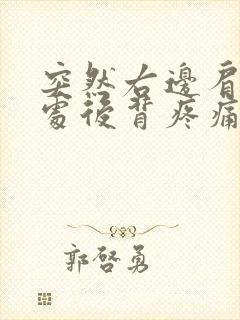 突然右邊肩
處後背疼痛
郭啓勇